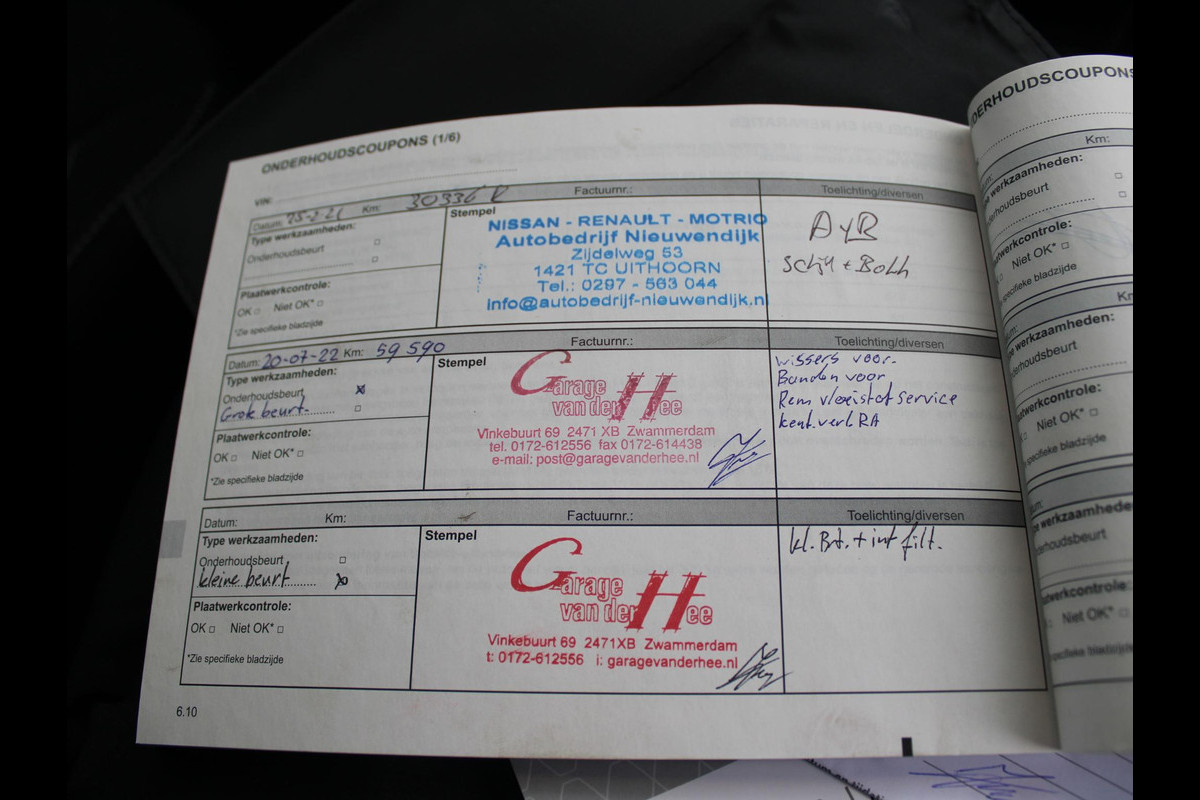 ONDERHOUDSCOUPONS (1/6)
VIN:
Datum: Km: 30336 Factuurnr.: Toelichting/diversen
Type werkzaamheden:
Onderhoudsbeurt □
□
Plaatwerkcontrole:
OK □ Niet OK* □
*Zie specifieke bladzijde
Stempel
NISSAN - RENAULT - MOTRIO
Autobedrijf Nieuwendijk
Zijdelweg 53
1421 TC UITHOORN
Tel.: 0297 - 563 044
info@autobedrijf-nieuwendijk.nl
A+B
Datum: 20-07-22 Km: 59 590 Factuurnr.: Toelichting/diversen
Type werkzaamheden:
Onderhoudsbeurt ☒
Grote beurt. □
Plaatwerkcontrole:
OK □ Niet OK* □
*Zie specifieke bladzijde
Stempel
Garage
van der Hee
Vinkebuurt 69 2471 XB Zwammerdam
tel. 0172-612556 fax 0172-614438
e-mail: post@garagevanderhee.nl
wissers voor.
Banden voor
Rem vloeistof service
kent. verl. RA
Datum: Km: Factuurnr.: Toelichting/diversen
Type werkzaamheden:
Onderhoudsbeurt □
kleine beurt ☒
Plaatwerkcontrole:
OK □ Niet OK* □
*Zie specifieke bladzijde
Stempel
Garage
van der Hee
Vinkebuurt 69 2471XB Zwammerdam
t: 0172-612556 i: garagevanderhee.nl
kl. Brt. + int filt.
6.10
ONDERHOUDSCOUPONS
Km:
werkzaamheden:
Onderhoudsbeurt
Plaatwerkcontrole:
Niet OK* □
specifieke bladzijde
werkzaamheden:
Onderhoudsbeurt
Plaatwerkcontrole:
Niet OK* □
specifieke bladzijde
werkzaamheden
Onderhoudsbeurt
Plaatwerkcontrole:
Niet OK* □
specifieke bladzijde